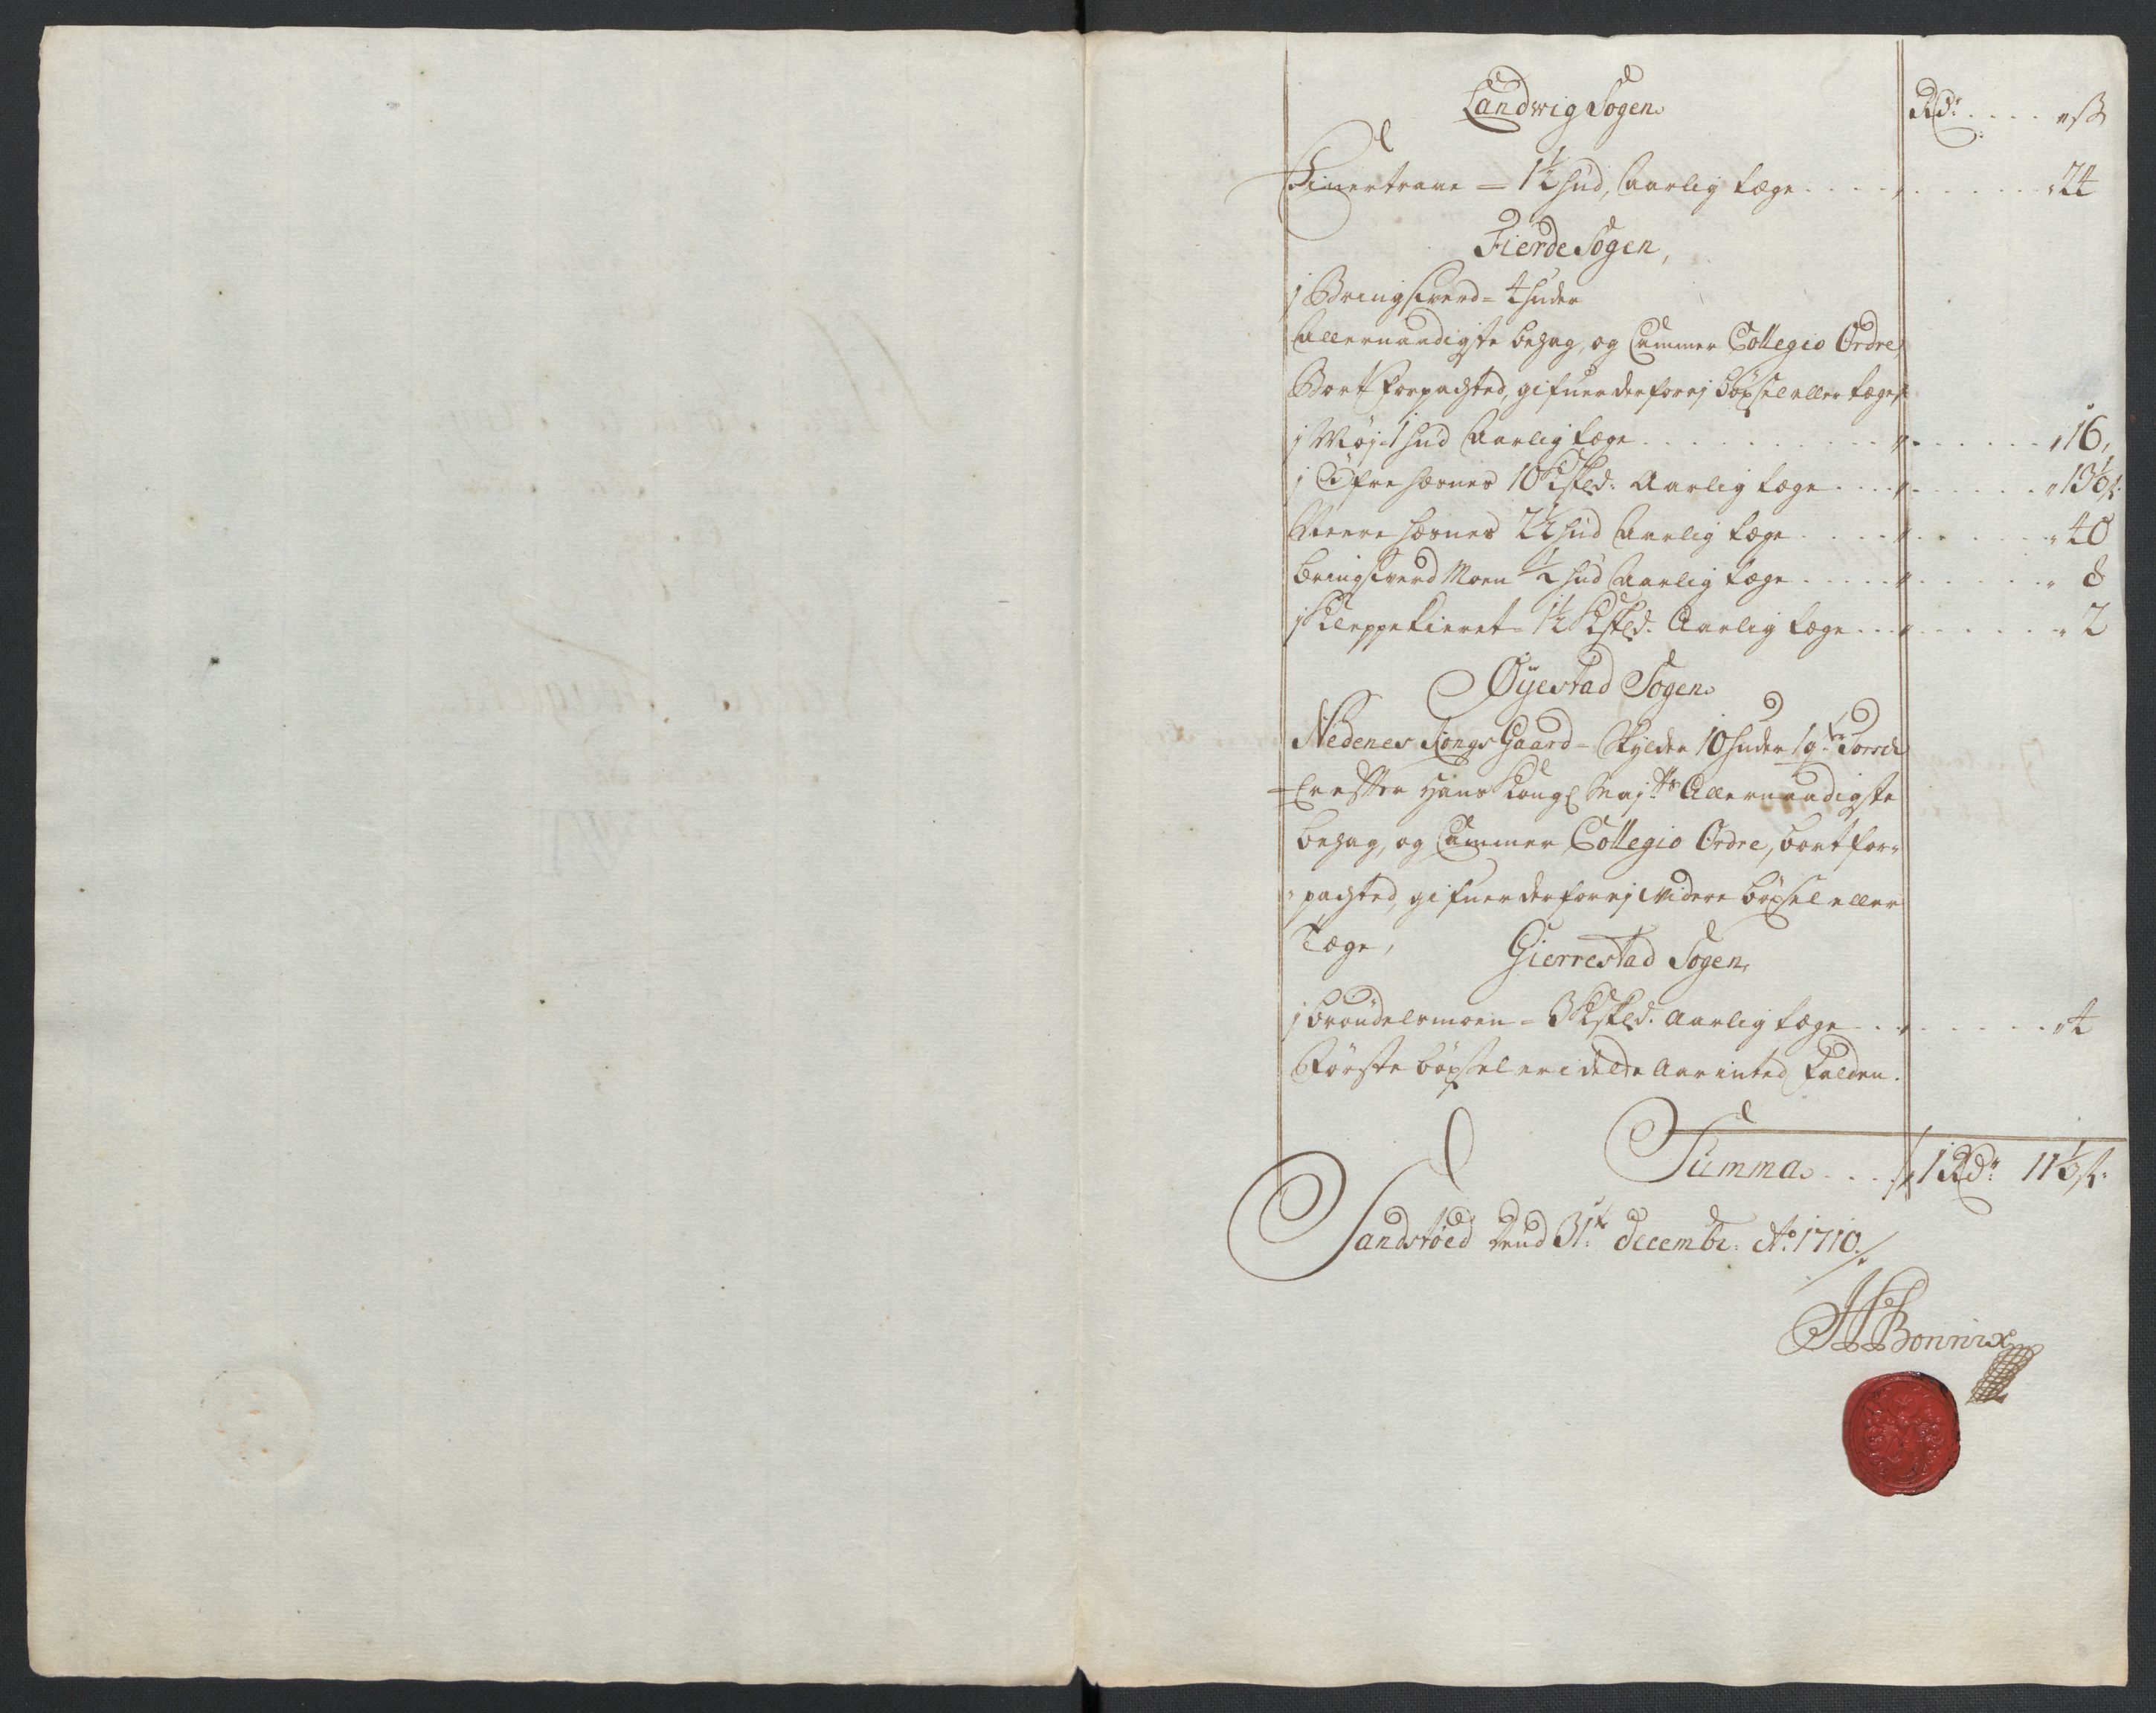 Landwig Sogen
Rdr. . . . . ß
Himertraae = 1½ hud, Aarlig tæge . . . . 24
Fierde Sogen,
j Bringsverd = 4 huder
Allernaadigste behag, og Cammer Collegio Ordre,
Bort forpachted, gifuer derfor ej böxsel eller tæge,
j Møj = 1 hud Aarlig tæge . . . . 16,
j Öfre hæsnes 10 Kskld: Aarlig tæge . . . . 13⅓ ß.
Neere hæsnes 2½ hud Aarlig tæge . . . . 40
bringsverd Moen ½ hud Aarlig tæge . . . . 8
j Kleppekieret = 1½ Kskld. Aarlig tæge . . . . 2
Øyestad Sogen
Nedenes KongsGaard = Skylder 10 huder
Er efter Hans Kongl Maj.ts Allernaadigste
behag, og Cammer Collegio Ordre, bortfor-
pachted, gifuer derfor ej videre böxsel eller
Tæge,
Gierrestad Sogen,
j Brøndelsmoen = 3 Kskld. Aarlig tæge . . . . 4
Förste böxsel er i dette Aar inted falden.
Summa . . . 1 Rdr 11⅓ ß.
Sandstøed dend 31.te Decembr: Ao. 1710.
HBonnix